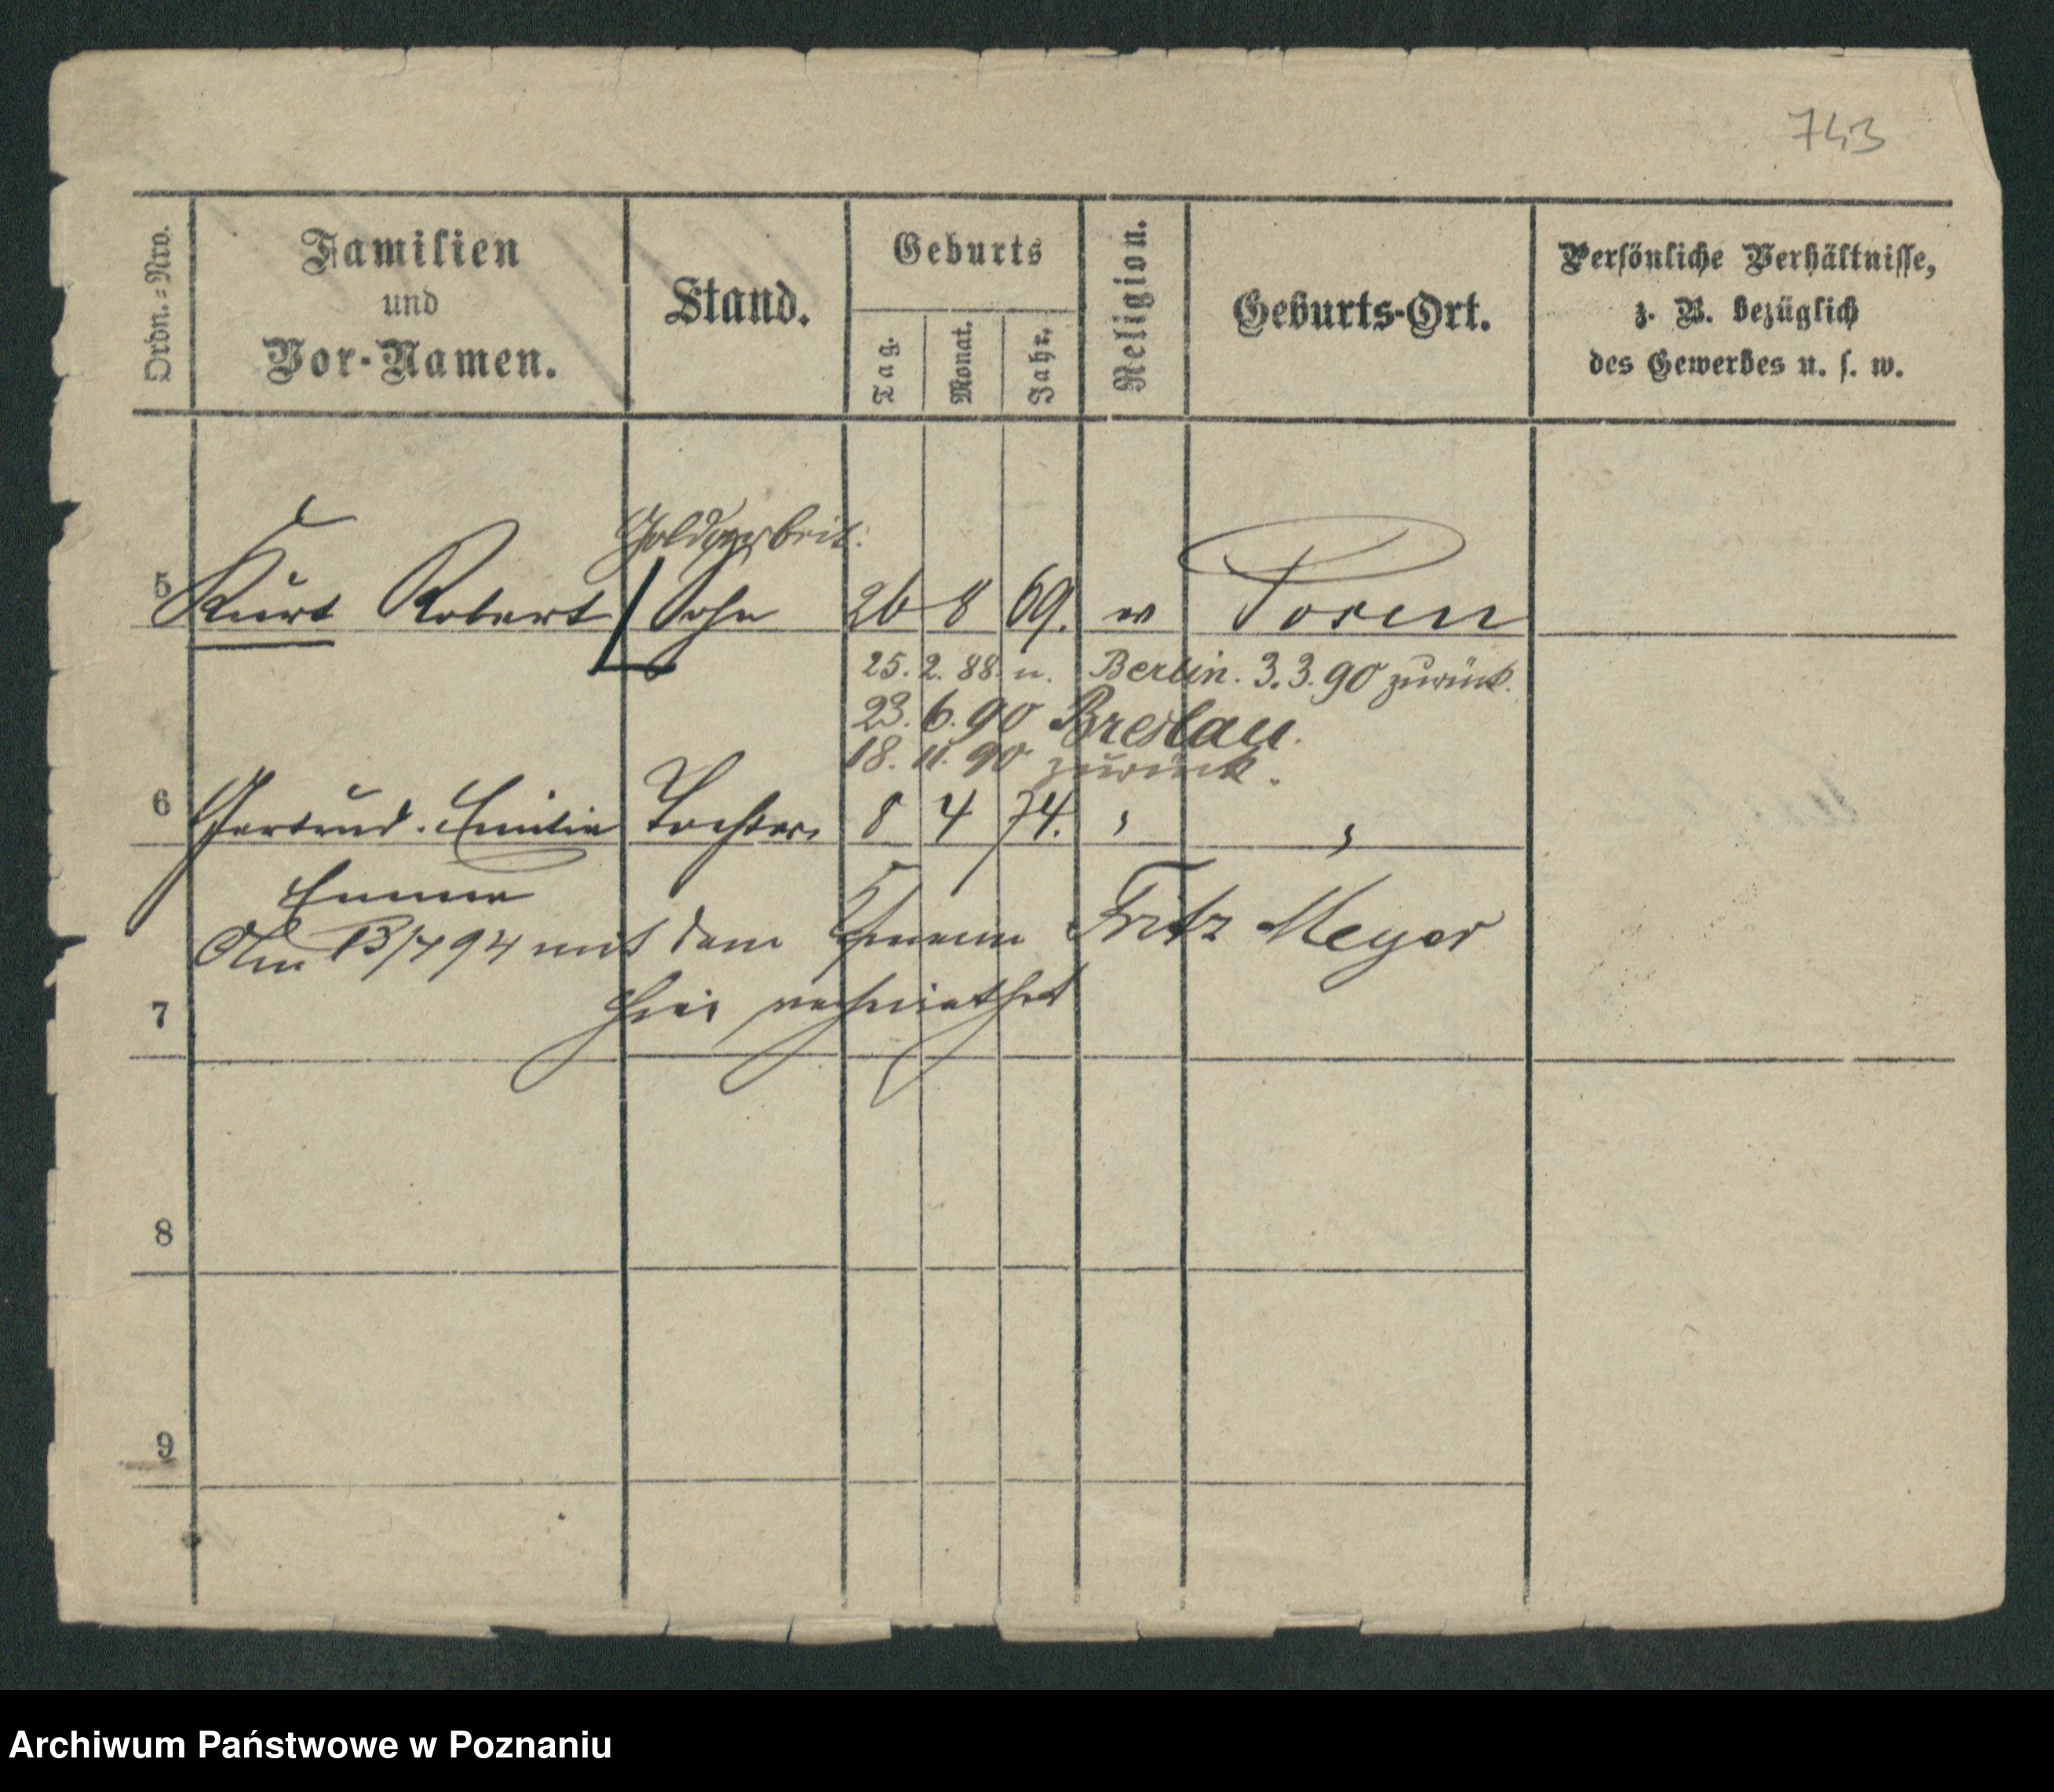 743
Ordn.=Nro.
Familien
und
Vor-Namen.
Stand.
Geburts
Tag.
Monat.
Jahr.
Religion.
Geburts-Ort.
Persönliche Verhältnisse,
z. B. bezüglich
des Gewerbes u. s. w.
Goldarbeit.
5 Kurt Robert Sohn 26 8 69. ev Posen
25. 2. 88. n. Berlin. 3. 3. 90 zurück.
23. 6. 90 Breslau.
18. 11. 90 zurück.
6 Gertrud. Emilie Tochter. 8 4 74. " "
Emma
Am 13/4 94 mit dem Fritz Meyer
7 hier verheirathet
8
9
Archiwum Państwowe w Poznaniu